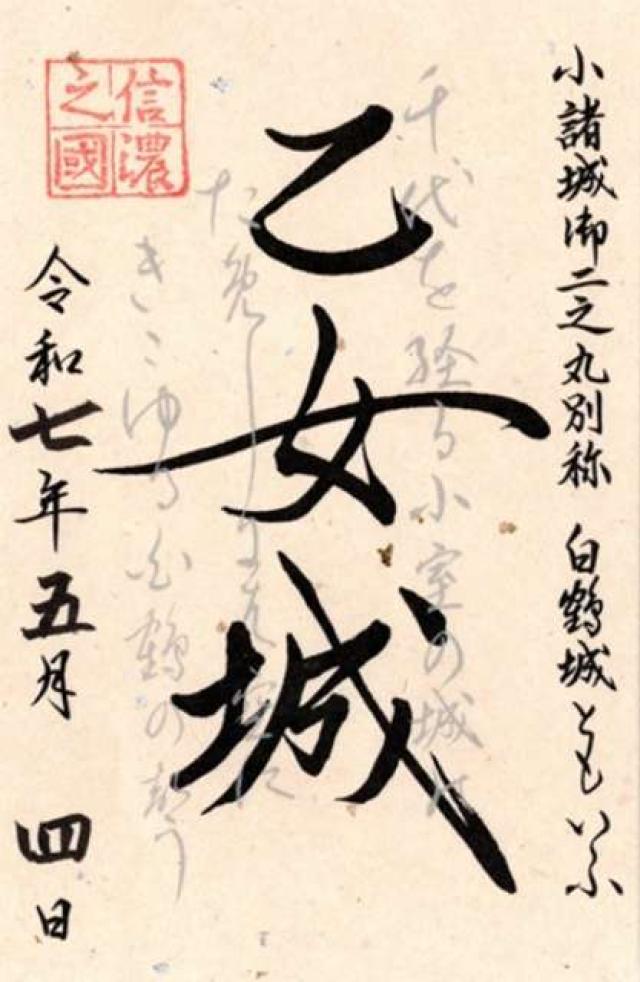 小諸城御二之丸別称 白鶴城ともいふ
千代を経る小室の城は
乙女城
きこゆる白鶴の
信濃之國
令和七年五月 四日